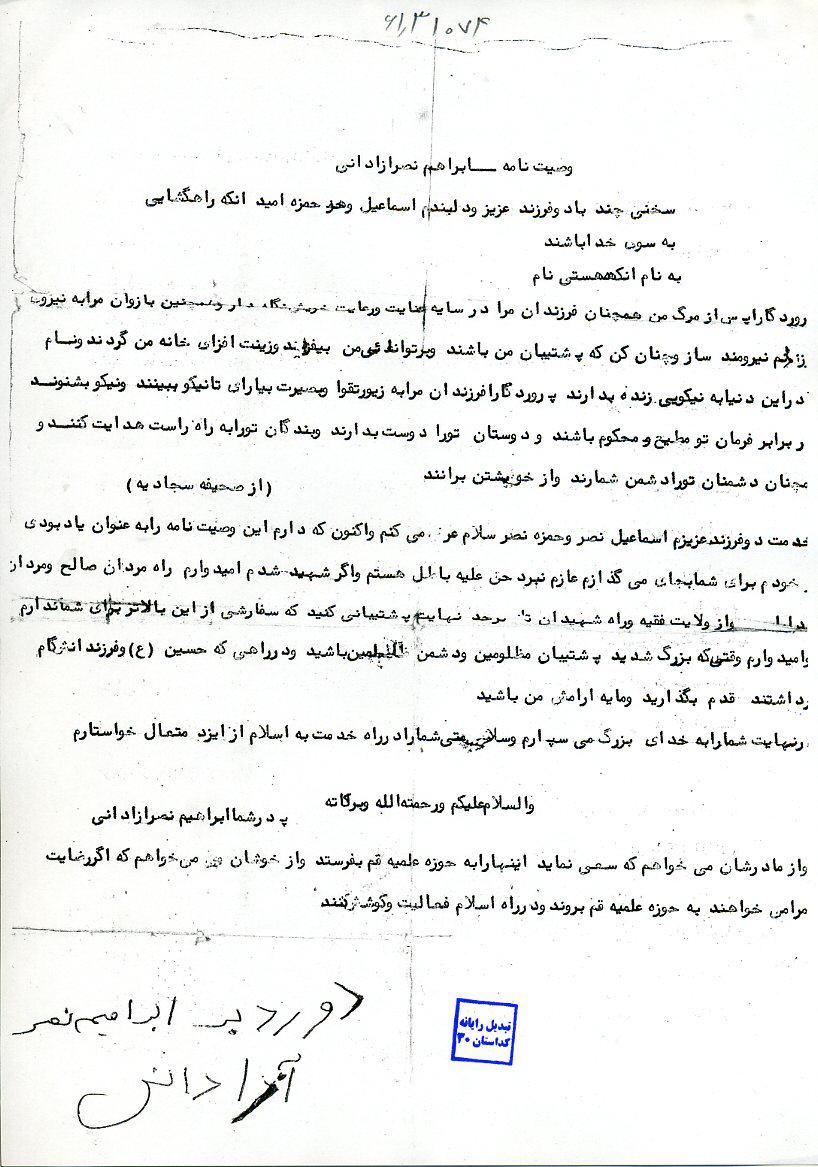 ۶۱٫۳۱۰۷۴
وصیت نامه ــ ابراهیم نصرازادانی
سخنی چند باد وفرزند عزیز ود لبندم اسماعیل و حمزه امید انکه راهگشایی
به سوی خداباشند
به نام انکه هستی نام
رورد گاراپس از مرگ من همچنان فرزندان مرا در سایه عنایت ورعایت خویش نگاه دار وهمچنین بازوان مرابه نیروی
نیرومند ساز وچنان کن که پشتیبان من باشند وبرتوانائی من بیفزایند وزینت افزای خانه من گردند ونام
دراین دنیابه نیکویی زنده بدارند پرورد گارافرزندان مرابه زیورتقوا وبصیرت بیارای تانیکو ببینند ونیکو بشنوند
ر برابر فرمان تو مطیع و محکوم باشند ود وستان تورا دوست بدارند وبندگان تورابه راه راست هدایت کنند و
مچنان دشمنان تورادشمن شمارند واز خویشتن برانند
(از صحیفه سجادیه)
خدمت دوفرزند عزیزم اسماعیل نصر وحمزه نصر سلام عرض می کنم واکنون که دارم این وصیت نامه رابه عنوان یادبودی
خودم برای شمابجای می گذارم عازم نبرد حق علیه باطل هستم واگر شهید شدم امیدوارم راه مردان صالح ومردان
واز ولایت فقیه وراه شهیدان تا سرحد نهایت پشتیبانی کنید که سفارشی از این بالاتر برای شماندارم
وامیدوارم وقتی که بزرگ شدید پشتیبان مظلومین ودشمن ظالمین باشید ودرراهی که حسین (ع) وفرزندانش گام
رداشتند قدم بگذارید ومایه ارامش من باشید
رنهایت شمارابه خدای بزرگ می سپارم وسلامتی شمارادرراه خدمت به اسلام از ایزد متعال خواستارم
والسلام علیکم ورحمته الله وبرکاته
پدرشماابراهیم نصرازادانی
واز مادرشان می خواهم که سعی نماید اینهارابه حوزه علمیه قم بفرستد واز خوشان می خواهم که اگررضایت
مرامی خواهند به حوزه علمیه قم بروند ودرراه اسلام فعالیت وکوشش کنند
ابراهیم نصر
آزادانی
تبدیل رایانه
کداستان ۳۰